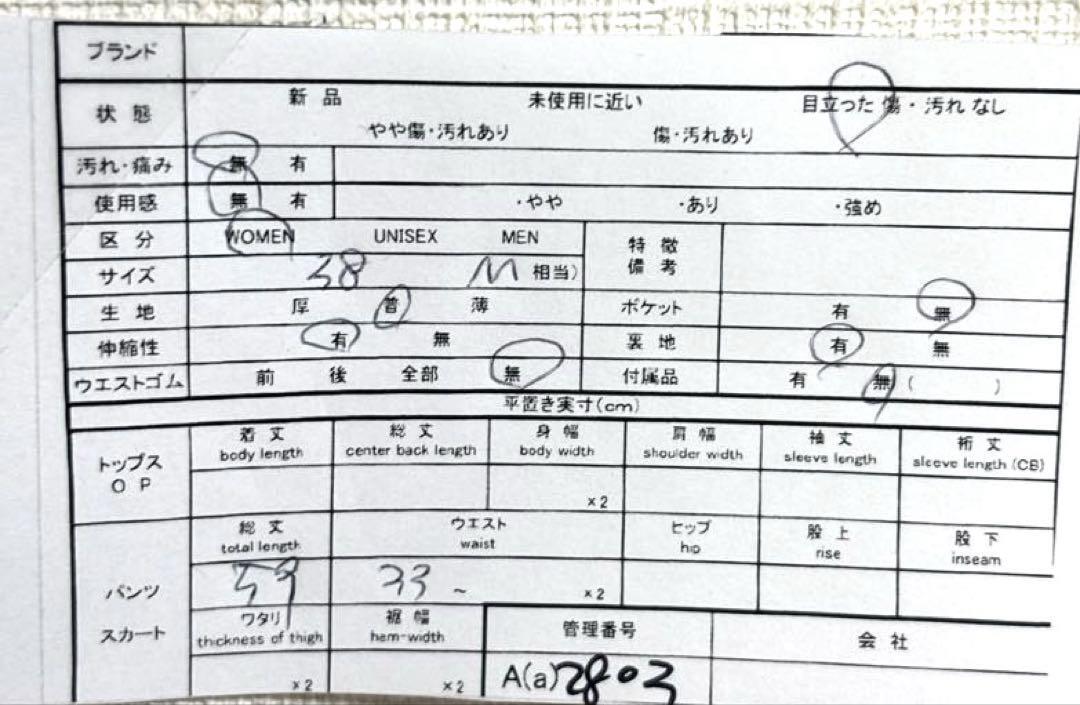 ブランド
状態 新品 未使用に近い 目立った傷・汚れなし
やや傷・汚れあり 傷・汚れあり
汚れ・痛み 無 有
使用感 無 有 ・やや ・あり ・強め
区分 WOMEN UNISEX MEN 特徴
備考
サイズ 38 M 相当)
生地 厚 普 薄 ポケット 有 無
伸縮性 有 無 裏地 有 無
ウエストゴム 前 後 全部 無 付属品 有 無 ( )
平置き実寸(cm)
トップス
OP
着丈 総丈 身幅 肩幅 袖丈 裄丈
body length center back length body width shoulder width sleeve length sleeve length (CB)
×2
パンツ
スカート
総丈 ウエスト ヒップ 股上 股下
total length waist hip rise inseam
59 33 ~ ×2
ワタリ 裾幅 管理番号 会社
thickness of thigh hem-width
×2 ×2 A(a)2803